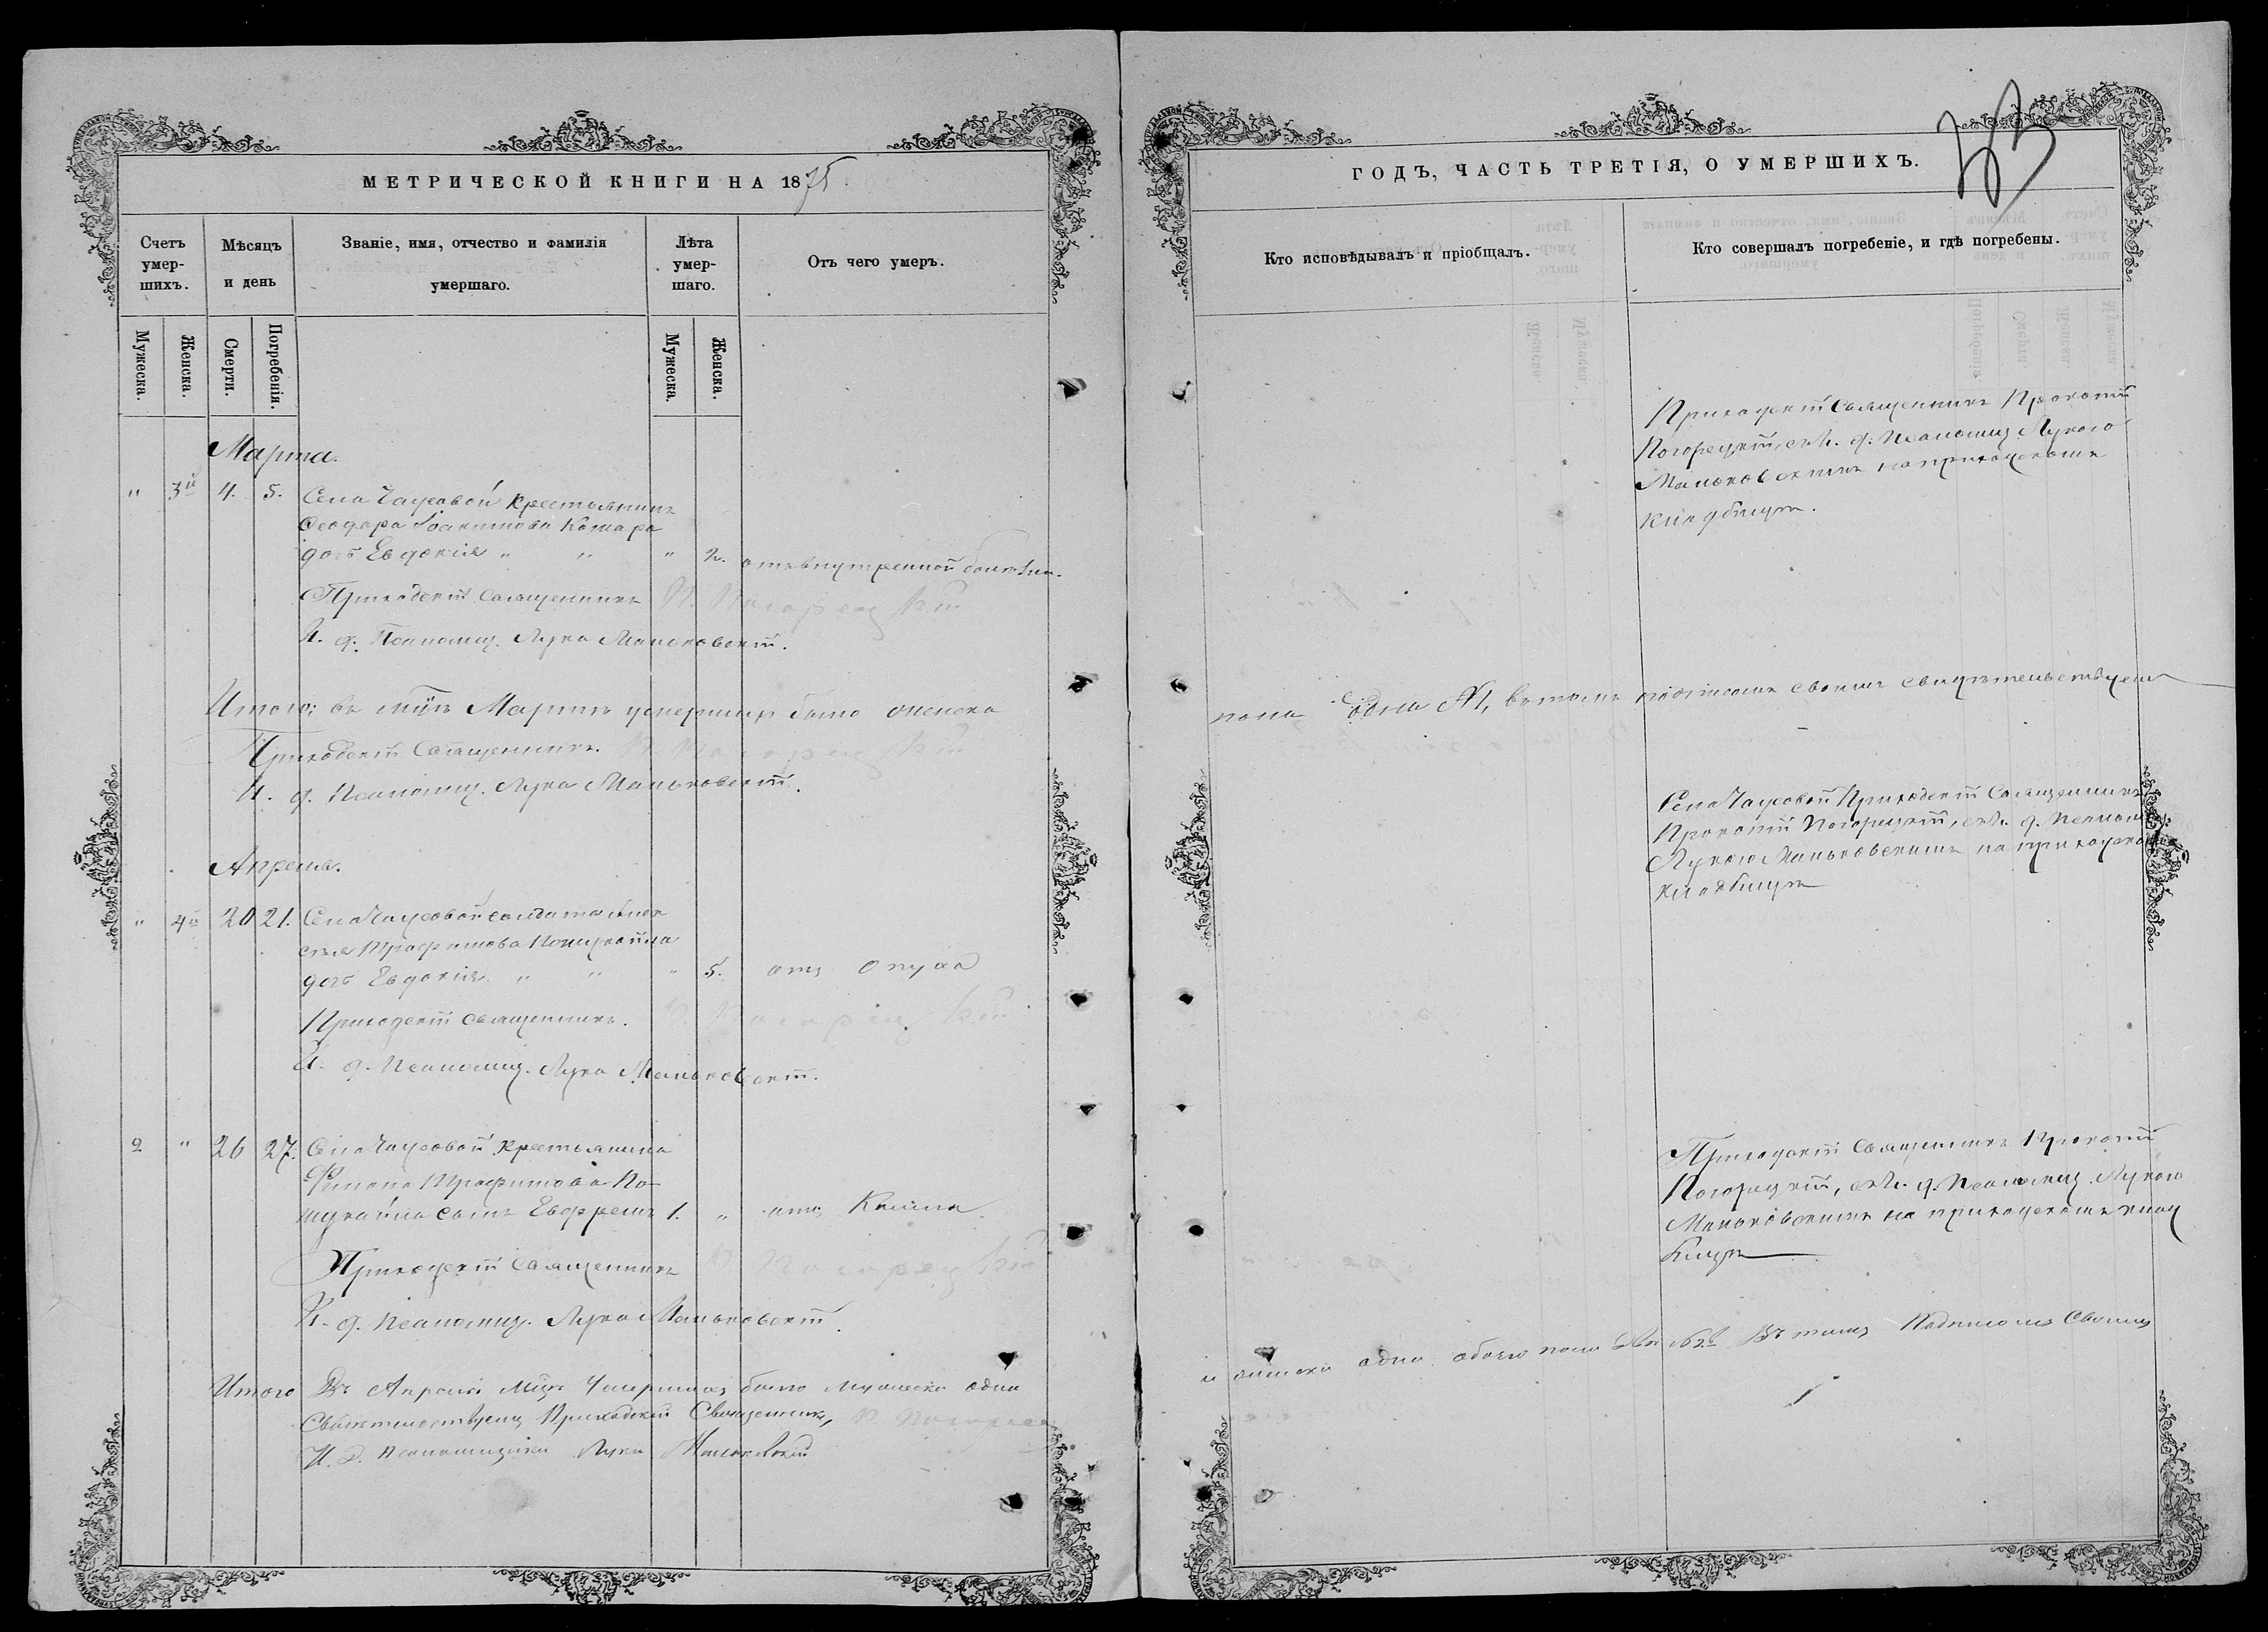 МЕТРИЧЕСКОЙ КНИГИ НА 1875
Счетъ умер-шихъ.
Мѣсяцъ и день
Званіе, имя, отчество и фамилія умершаго.
Лѣта умер-шаго.
Отъ чего умеръ.
Мужеска.
Женска.
Смерти.
Погребенія.
Мужеска.
Женска.
Марта.
" 3й 4. 5. Села Чаусовой крестьянина
Феодора Іоакимова
дочь Евдокія " " " 2. отъ внутренной болѣзни.
Приходскій Священникъ П. Погорецкій
И. д. Псаломщ. Лука Маньковскій.
Итого: въ Мартѣ умершихъ было женска
Приходскій Священникъ. П. Погорецкій
И. д. Псаломщ. Лука Маньковскій.
Апреля.
" 4й 20 21. Села Чаусовой солдата
Трофимова
дочь Евдокія " " " 5. отъ опуха
Приходскій Священникъ. П. Погорецкій
И. д. Псаломщ. Лука Маньковскій.
2 " 26 27. Села Чаусовой Крестьянина
Филипа Трофимова По-
сынъ Евфремъ 1. " отъ Кашля
Приходскій Священникъ П. Погорецкій
И. д. Псаломщ. Лука Маньковскій.
Итого Въ Апрелѣ Умершихъ было мужеска одна
Свидѣтельствуемъ Приходскій Священникъ, П.
И. д. Псаломщика Лука Маньковскій
ГОДЪ, ЧАСТЬ ТРЕТІЯ, О УМЕРШИХЪ.
Кто исповѣдывалъ и пріобщалъ.
Кто совершалъ погребеніе, и гдѣ погребены.
Приходскій Священникъ Прокопій
Погорецкій, съ И. д. Псаломщ. Лукою
Маньковскимъ на приходскомъ
кладбищѣ.
пола одна №1, въ томъ подписомъ своимъ свидѣтельствуемъ
Села Чаусовой Приходскій Священникъ
Прокопій Погорецкій, съ И. д. Псалом.
Лукою Маньковскимъ на приходскомъ
кладбищѣ
Приходскій Священникъ Прокопій
Погорецкій, съ И. д. Псаломщ. Лукою
Маньковскимъ на приходскомъ клад
бищѣ
и женска одна обоего пола две №2й Въ томъ Подписомъ Своимъ